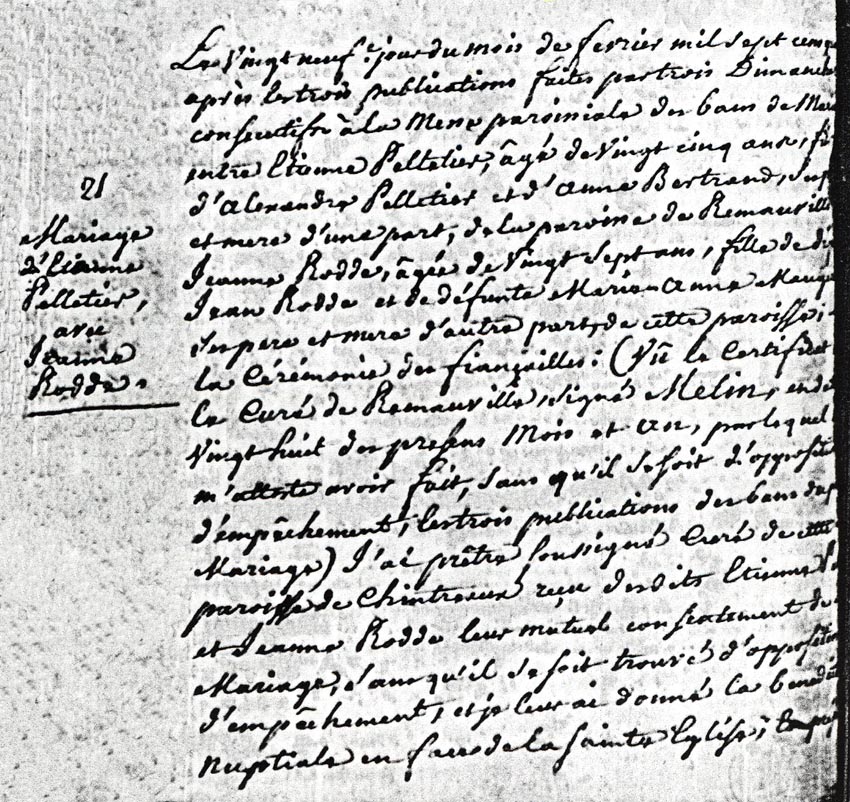 21
Mariage
d'Etienne
Pelletier,
avec
Jeanne
Rodde.
Le Vingt neuf.e jour du mois de fevrier mil sept cens
après les trois publications faites par trois Dimanches
consecutifs à la Messe paroissiale des bans de Mar
entre Etienne Pelletier, âgé de vingt cinq ans, fi
d'Alexandre Pelletier et d'Anne Bertrand, ses p
et mere d'une part, de la paroisse de Remauville
Jeanne Rodde, âgée de Vingt Sept ans, fille de
Jean Rodde et de défunte Marie-Anne
ses pere et mere d'autre part, de cette paroisse;
la Cérémonie des fiançailles: (Vû le Certificat
le Curé de Remauville, signé Melin, en d
Vingt huit des presens Mois et An, par lequel
m'atteste avoir fait, sans qu'il se soit d'opposit
d'empêchement, les trois publications des bans du
Mariage) J'ai prêtre soussigné Curé de cette
paroisse de Chintreaux reçu desdits Etienne P
et Jeanne Rodde leur mutuel consentement de
Mariage, sans qu'il se soit trouvé d'opposition
d'empêchement, et je leur ai donné la benedi
Nuptiale en face de la Sainte Eglise,